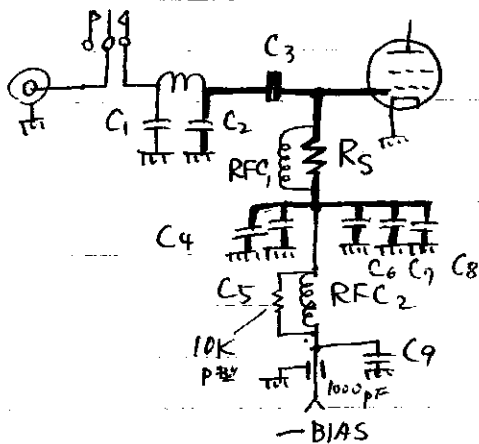 C3
C1
C2
RFC1
RS
C4
C6 C7 C8
C5
RFC2
10K
P型
C9
1000
pF
-BIAS